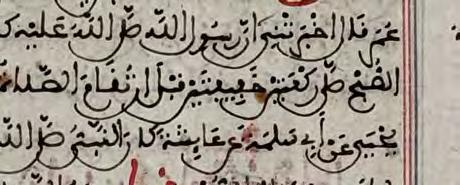 عمر قال اخبرتني ان رسول الله صلى الله عليه
الصبح صلى ركعتين خفيفتين قبل ان تقام الصلاة
يحيى عن أبي سلمة عن عايشة كان النبي صلى الله